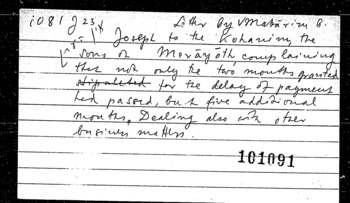 i 081 J 23 Letter by Mabārim b.
Joseph to the Kohanim, the
sons of Morāyōth complaining
that not only the two months granted
stipulated for the delay of payment
had passed, but five additional
months. Dealing also with other
business matters.
101091